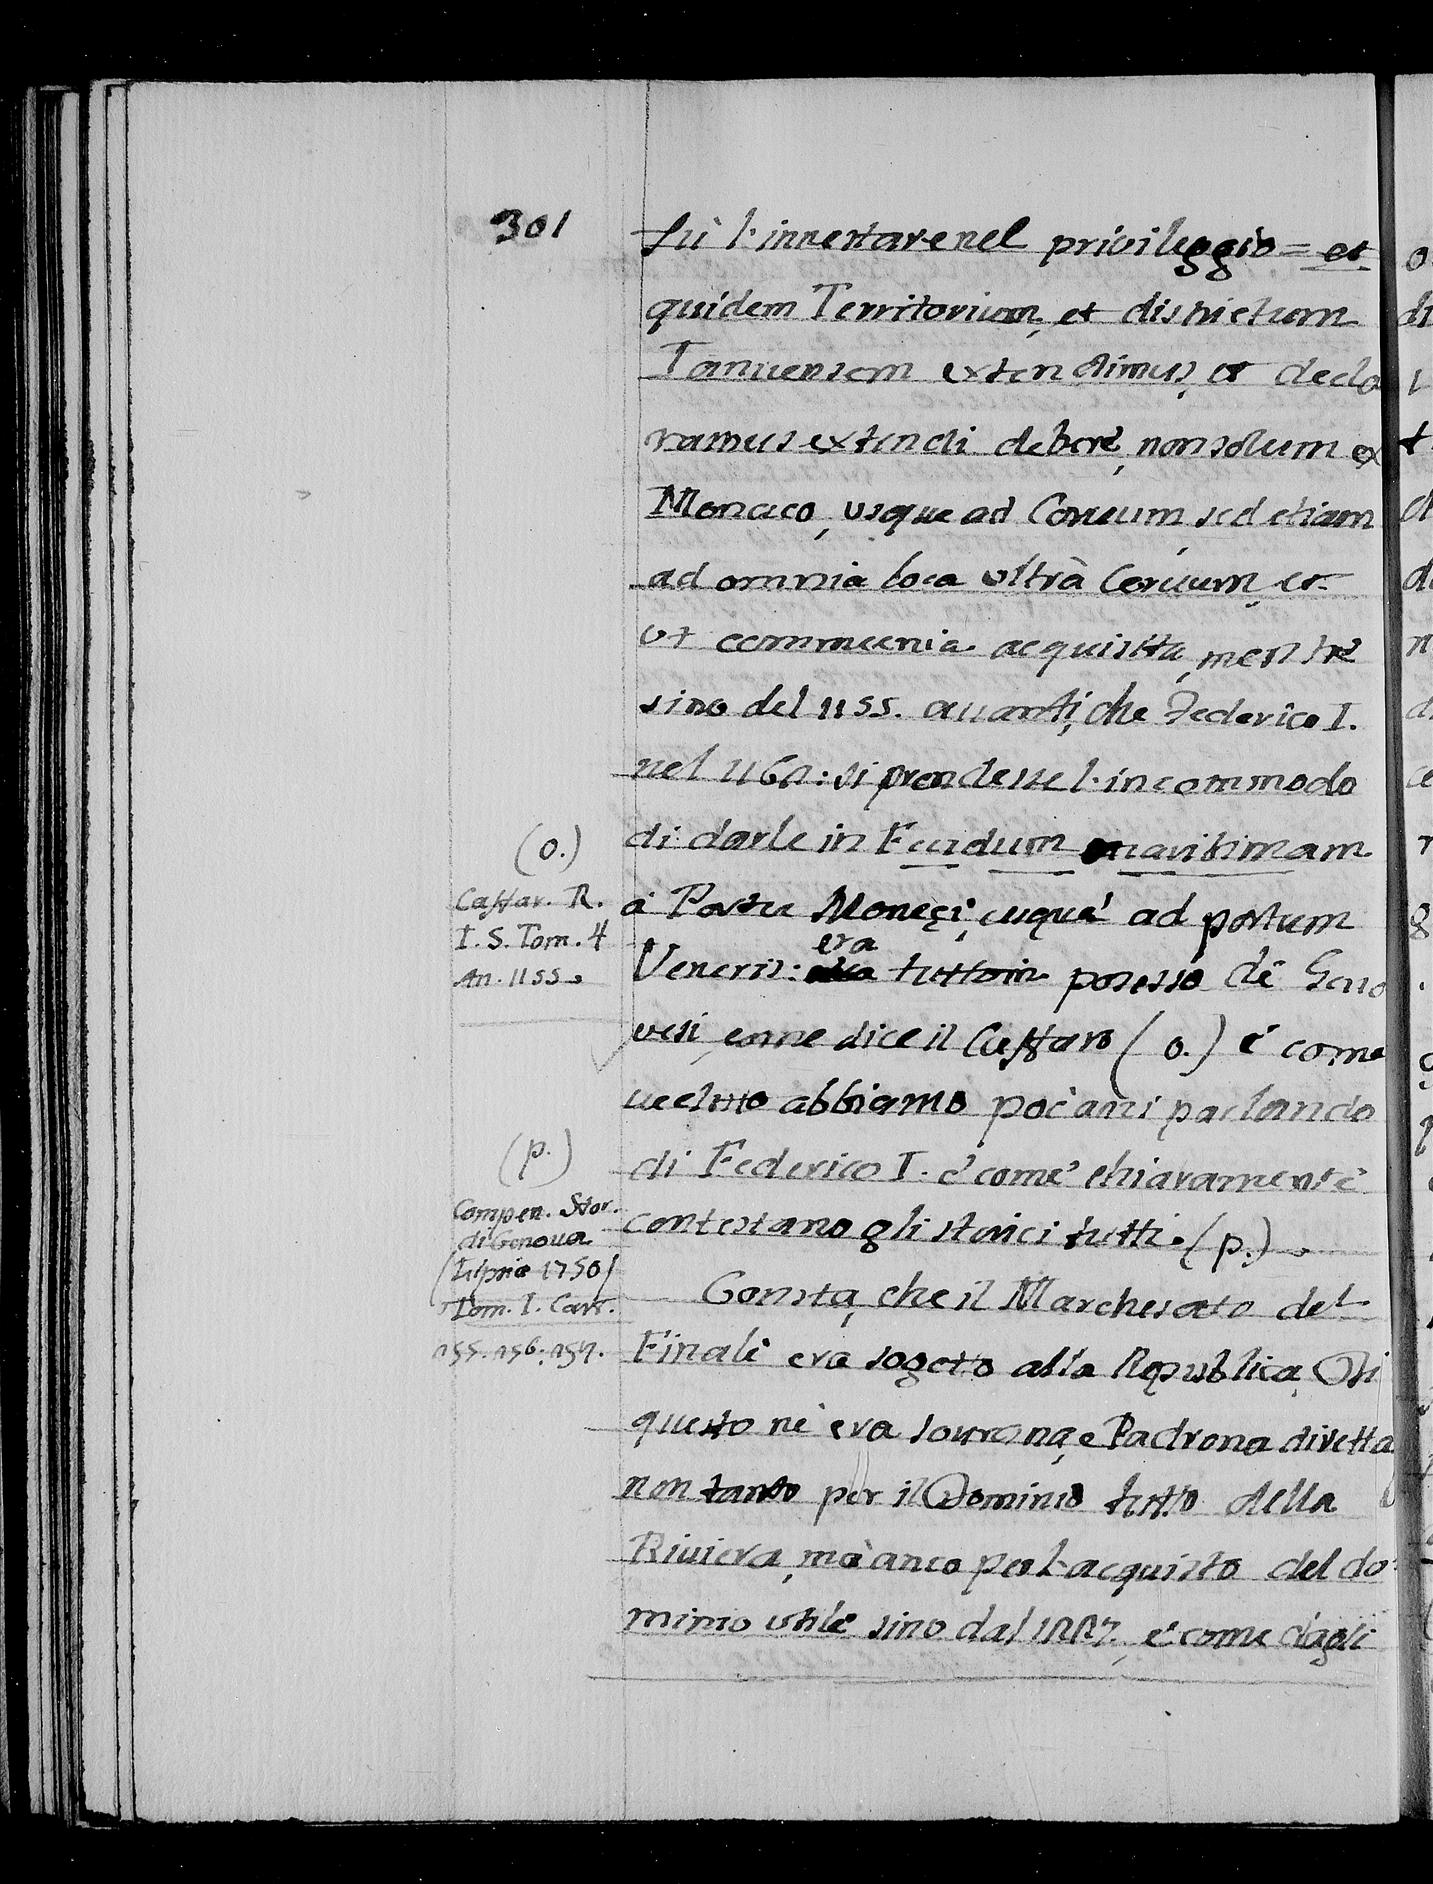 301
sù l'innestare nel privileggio = et
quidem Territorium, et districtum
Ianuensem extendimus, et decla
ramus extendi debere, non solum ex
Monaco, usque ad Coruum, sed etiam
ad omnia loca ultrà Coruum, et
ut communia acquistta, mentre
sino del 1155. auanti, che Federico I.
nel 1162: si prendesse l'incommodo
di darle in Feudum maritimam
à Portu Moneci, usque ad portum
Veneris: era tutto in posesso de Geno
uesi, come dice il Caffaro (o.) è come
ueduto abbiamo poc'anzi parlando
di Federico I. è come chiaramente
contestano gli storici tutti. (p.)
Consta, che il Marchesato del
Finale era sogetto alla Republica, Di
questo nè era sourana, e Padrona diretta
non tanto per il Dominio tutto della
Riuiera, mà anco per l'acquisto del do
minio utile sino dal è come dagli
(o.)
Caffar. R.
I. S. Tom. 4
An. 1155.
(p.)
Compen. Stor.
di Genoua
(Lipsia 1750)
Tom. I. Cart.
155. 156. 157.